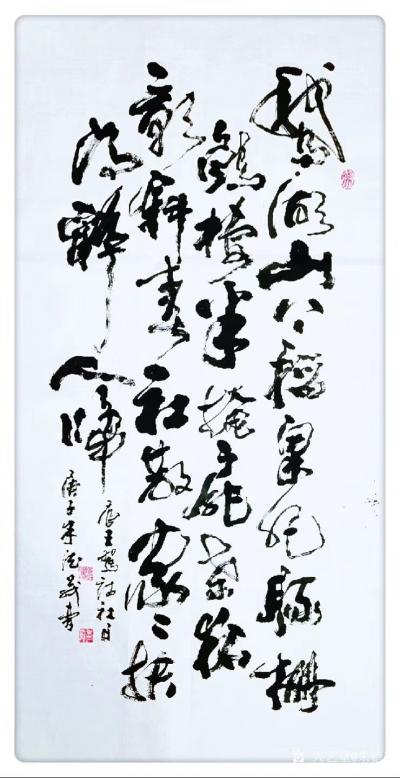 鵝湖山下稻粱肥豚栅
鷄棲半掩扉桑柘
影斜春社散家〻扶
得醉人歸
唐王駕詩社日
庚子 書